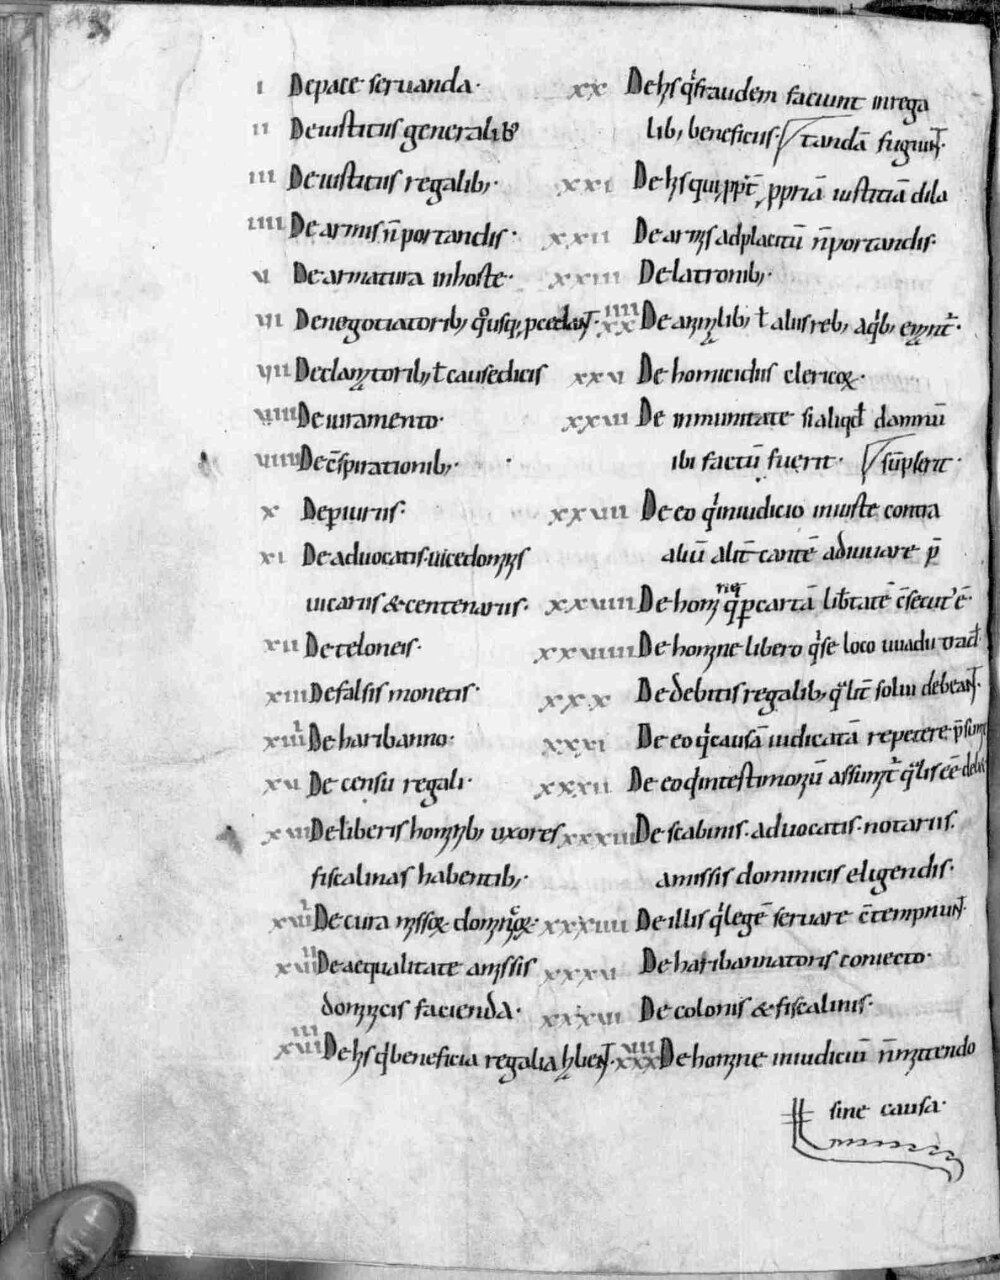 i De pace seruanda·
ii De iustitiis generalib;
iii De iustitiis regalib;·
iiii De armis n̄ portandis·
vi De armatura in hoste·
vi De negotiatorib; qͦusq; ꝓcedant·
vii De clamatorib; ł causedicis
viii De iuramento·
viiii De c̄spirationib;·
x De ꝑiuriis·
xi De aduocatis·uicedomnis
uicariis & centenariis·
xii De teloneis·
xiii De falsis monetis·
xiiii De haribanno·
xv De censu regali·
xvi De liberis hominib; uxores
fiscalinas habentib;·
xvii De cura missoꝝ dominicoꝝ·
xviii De aequalitate a missis
dominicis facienda·
xviiii De his qͥ beneficia regalia habent·
xx De his qͥ fraudem faciunt in rega
lib; beneficiis· tandā fugiunt·
xxi De his qui ꝓpt̄ ꝓpriā iustitiā dila
xxii De armis ad placitū n̄ portandis·
xxiii De latronib;·
xxiiii De animalib; ł aliis reb; a qͥb; emunt̃·
xxv De homicidiis clericoꝝ·
xxvii De inmunitate si aliqđ damnū
ibi factū fuerit· sūpserit·
xxviii De eo qͥ in iudicio iniuste contra
aliū alit̄ cantē adiuuare p̄
xxviiii De homine qͥ ꝑ cartā lib̄tatē c̄secut' ē·
xxviiii De homine libero qͥ se loco uuadii trađ·
xxx De debitis regalib; qͣlit̄ solui debeant·
xxxi De eo qͥ causā iudicatā repetere p̄sumit
xxxii De eo qͥ in testimoniū assumit̃ qͣlis eē debet
xxxiii De scabinis· aduocatis· notariis·
a missis dominicis eligendis·
xxxiiii De illis qͥ legē seruare c̄tempnunt·
xxxv De haribannatoris coniecto·
xxxvi De colonis & fiscalinis·
xxxviii De homine in iudiciū n̄ mittendo
sine causa·